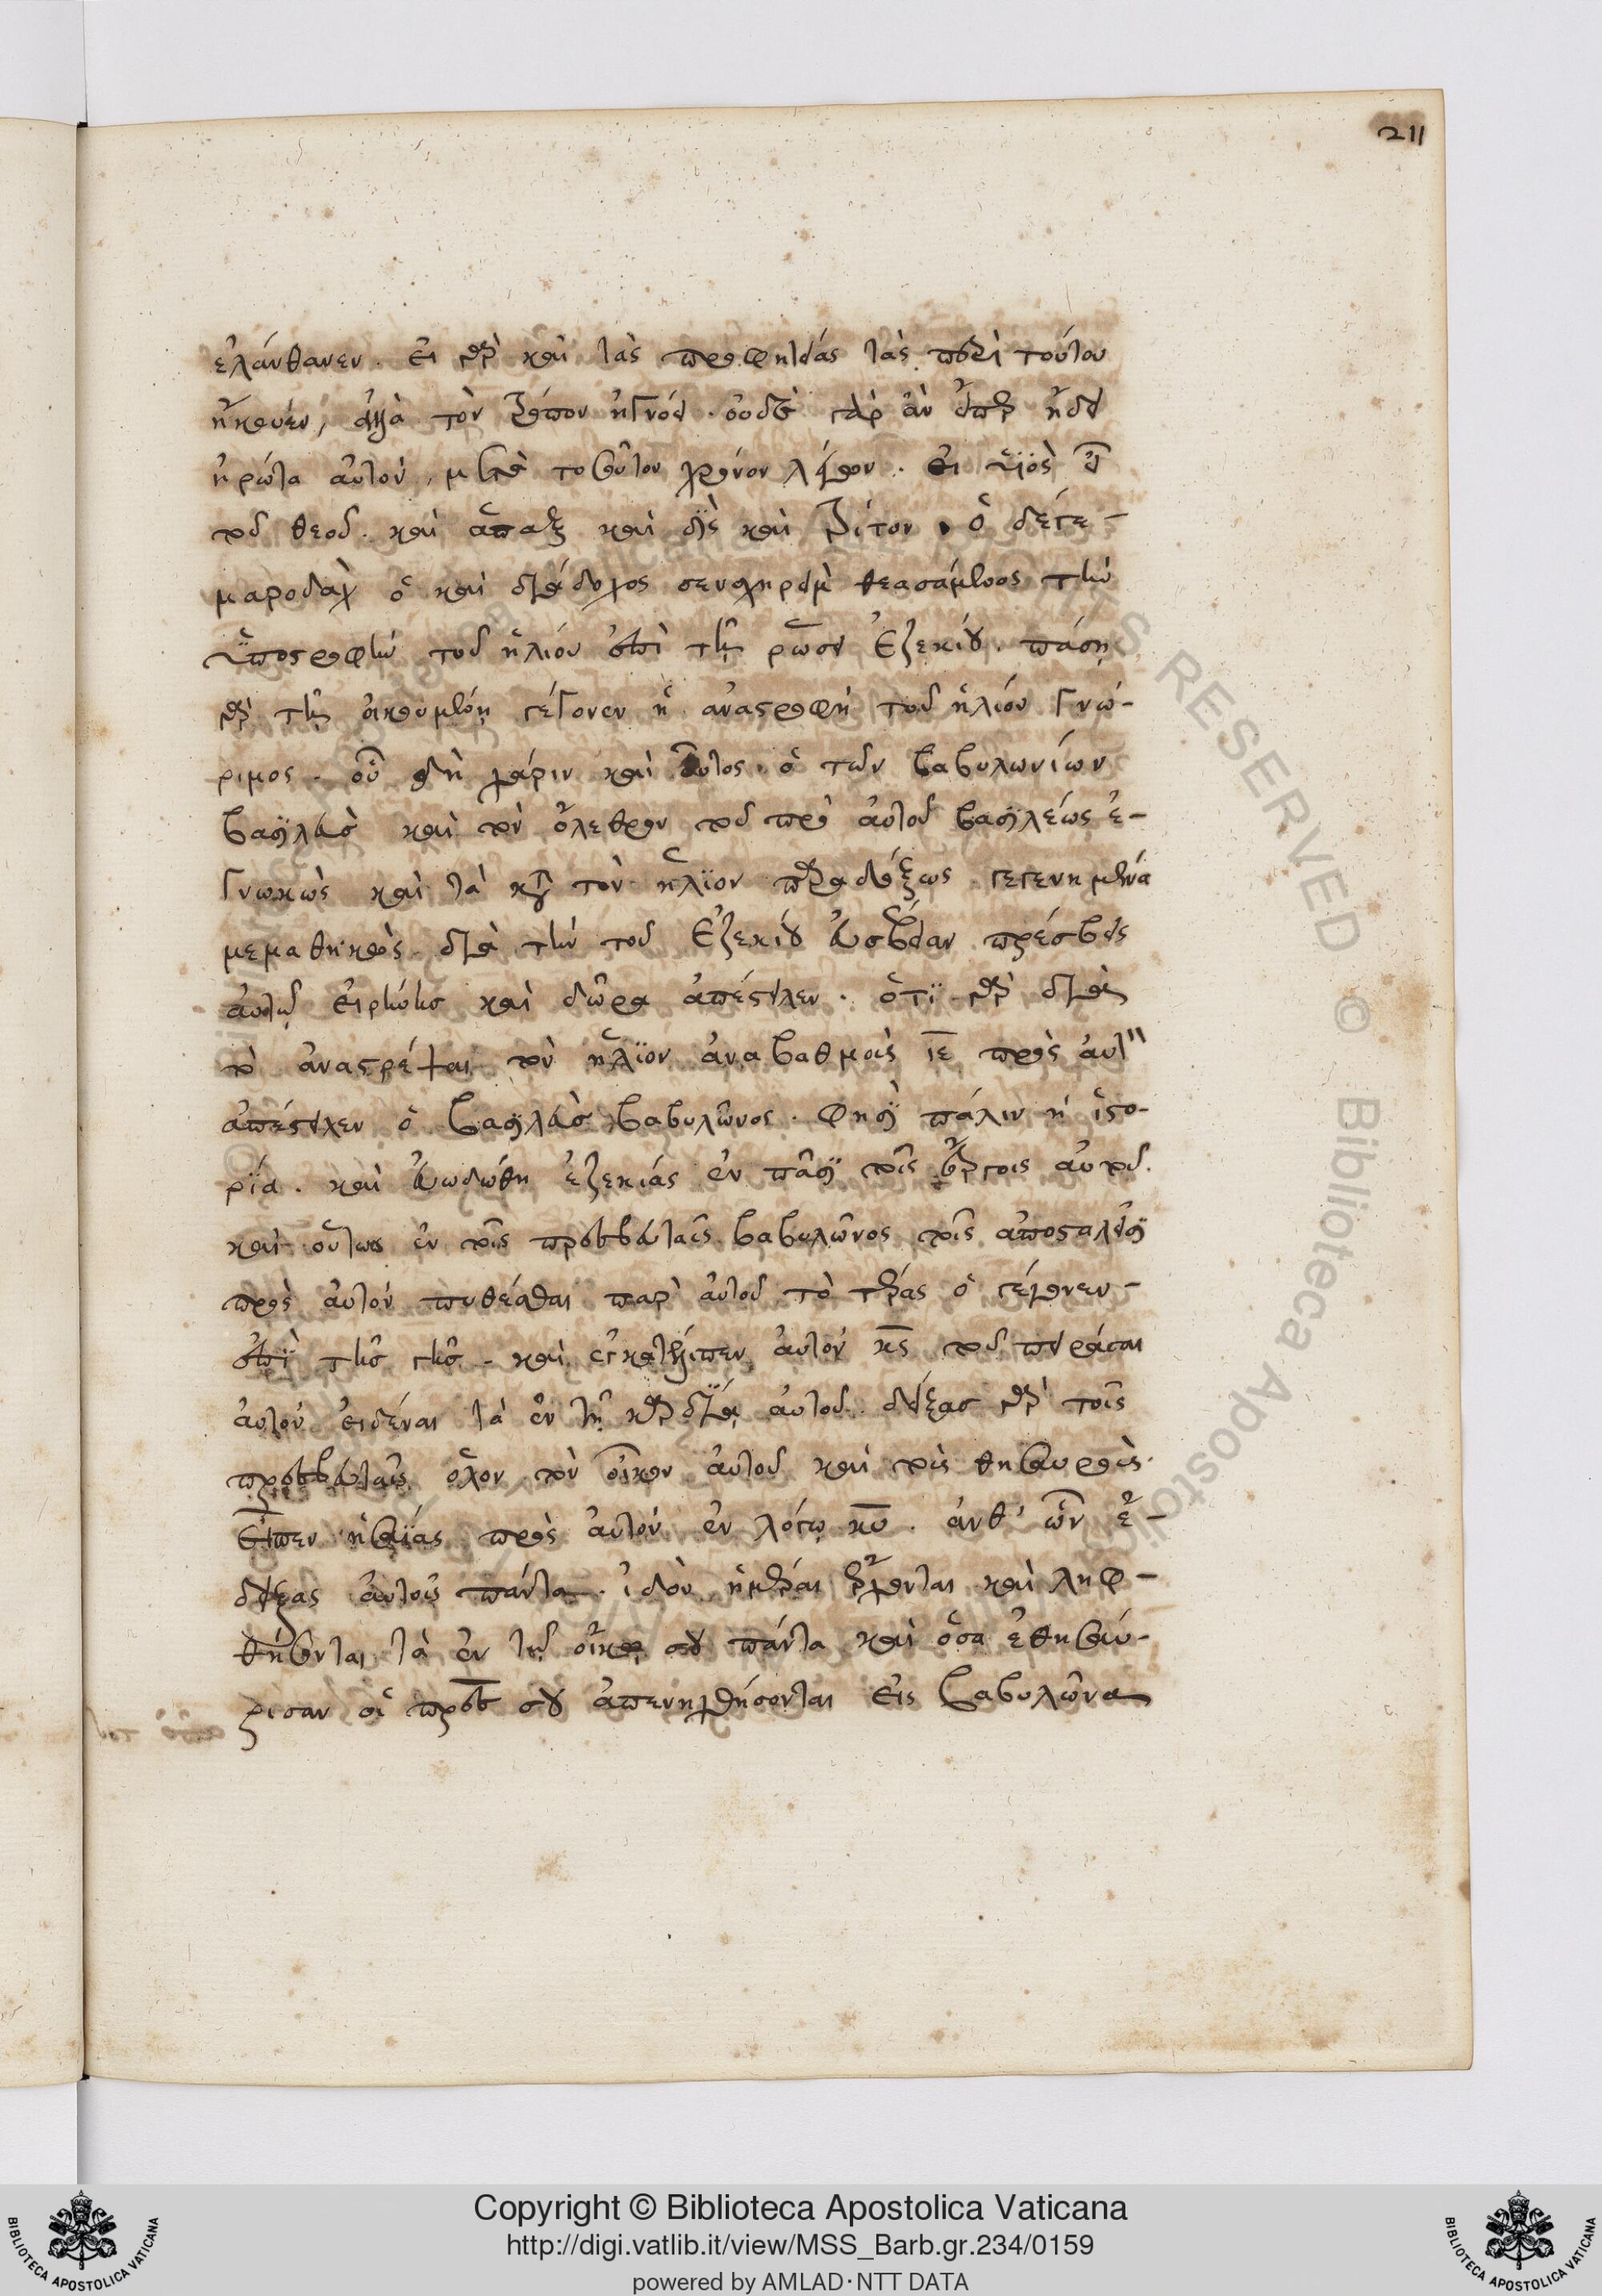 211
ἐλάνθανεν. εἰ γὰρ καὶ τὰς προφητείας τὰς περὶ τούτου
ἤκουεν, ἀλλὰ τὸν τρόπον ἠγνόει. οὐδὲ γὰρ ἂν εἴπερ ᾔδει
ἠρώτα αὐτὸν, μετὰ τοσοῦτον χρόνον λέγων. εἰ υἱὸς εἶ
τοῦ θεοῦ. καὶ ἅπαξ καὶ δὶς καὶ τρίτον. ὁ δέ γε
μαροδαχ ὁ καὶ διάδοχος σεναχηρεὶμ θεασάμενος τὴν
ὑποστροφὴν τοῦ ἡλίου ἐπὶ τῇ ῥώσει Ἐζεκίου. πάσῃ
γὰρ τῇ οἰκουμένῃ γέγονεν ἡ ἀναστροφὴ τοῦ ἡλίου γνώ-
ριμος. οὗ δὴ χάριν καὶ αὐτὸς ὁ τῶν βαβυλωνίων
βασιλεὺς καὶ τὸν ὄλεθρον τοῦ πρὸ αὐτοῦ βασιλέως ἐ-
γνωκὼς καὶ τὰ κατὰ τὸν ἥλιον παραδόξως γεγενημένα
μεμαθηκὼς διὰ τὴν τοῦ Ἐζεκίου εὐσέβειαν πρέσβεις
αὐτῷ εἰρήνης καὶ δῶρα ἀπέστειλεν. ὅτι γὰρ διὰ
τὸ ἀναστρέψαι τὸν ἥλιον ἀναβαθμοὺς ιε πρὸς αὐτὸν
ἀπέστειλεν ὁ βασιλεὺς βαβυλῶνος. φησὶ πάλιν ἡ ἱστο-
ρία. καὶ εὐωδώθη ἐζεκίας ἐν πᾶσι τοῖς ἔργοις αὐτοῦ.
καὶ οὕτως ἐν τοῖς πρεσβευταῖς βαβυλῶνος τοῖς ἀποσταλεῖσι
πρὸς αὐτὸν πυθέσθαι παρ' αὐτοῦ τὸ τέρας ὃ γέγονεν
ἐπὶ τῆς γῆς. καὶ ἐγκατέλιπεν αὐτὸν κς τοῦ πειράσαι
αὐτὸν εἰδέναι τὰ ἐν τῇ καρδίᾳ αὐτοῦ. δείξας γὰρ τοῖς
πρεσβευταῖς ὅλον τὸν οἶκον αὐτοῦ καὶ τοὺς θησαυροὺς.
εἶπεν ἡσαΐας πρὸς αὐτὸν ἐν λόγῳ κυ. ἀνθ' ὧν ἔ-
δειξας αὐτοῖς πάντα. ἰδοὺ ἡμέραι ἔρχονται καὶ ληφ-
θήσονται τὰ ἐν τῷ οἴκῳ σου πάντα καὶ ὅσα ἐθησαύ-
ρισαν οἱ πρες σου ἀπενηχθήσονται εἰς βαβυλῶνα
RIGHTS RESERVED © Biblioteca Apostolica
Copyright © Biblioteca Apostolica Vaticana
http://digi.vatlib.it/view/MSS_Barb.gr.234/0159
powered by AMLAD·NTT DATA
BIBLIOTECA APOSTOLICA VATICANA
BIBLIOTECA APOSTOLICA VATICANA